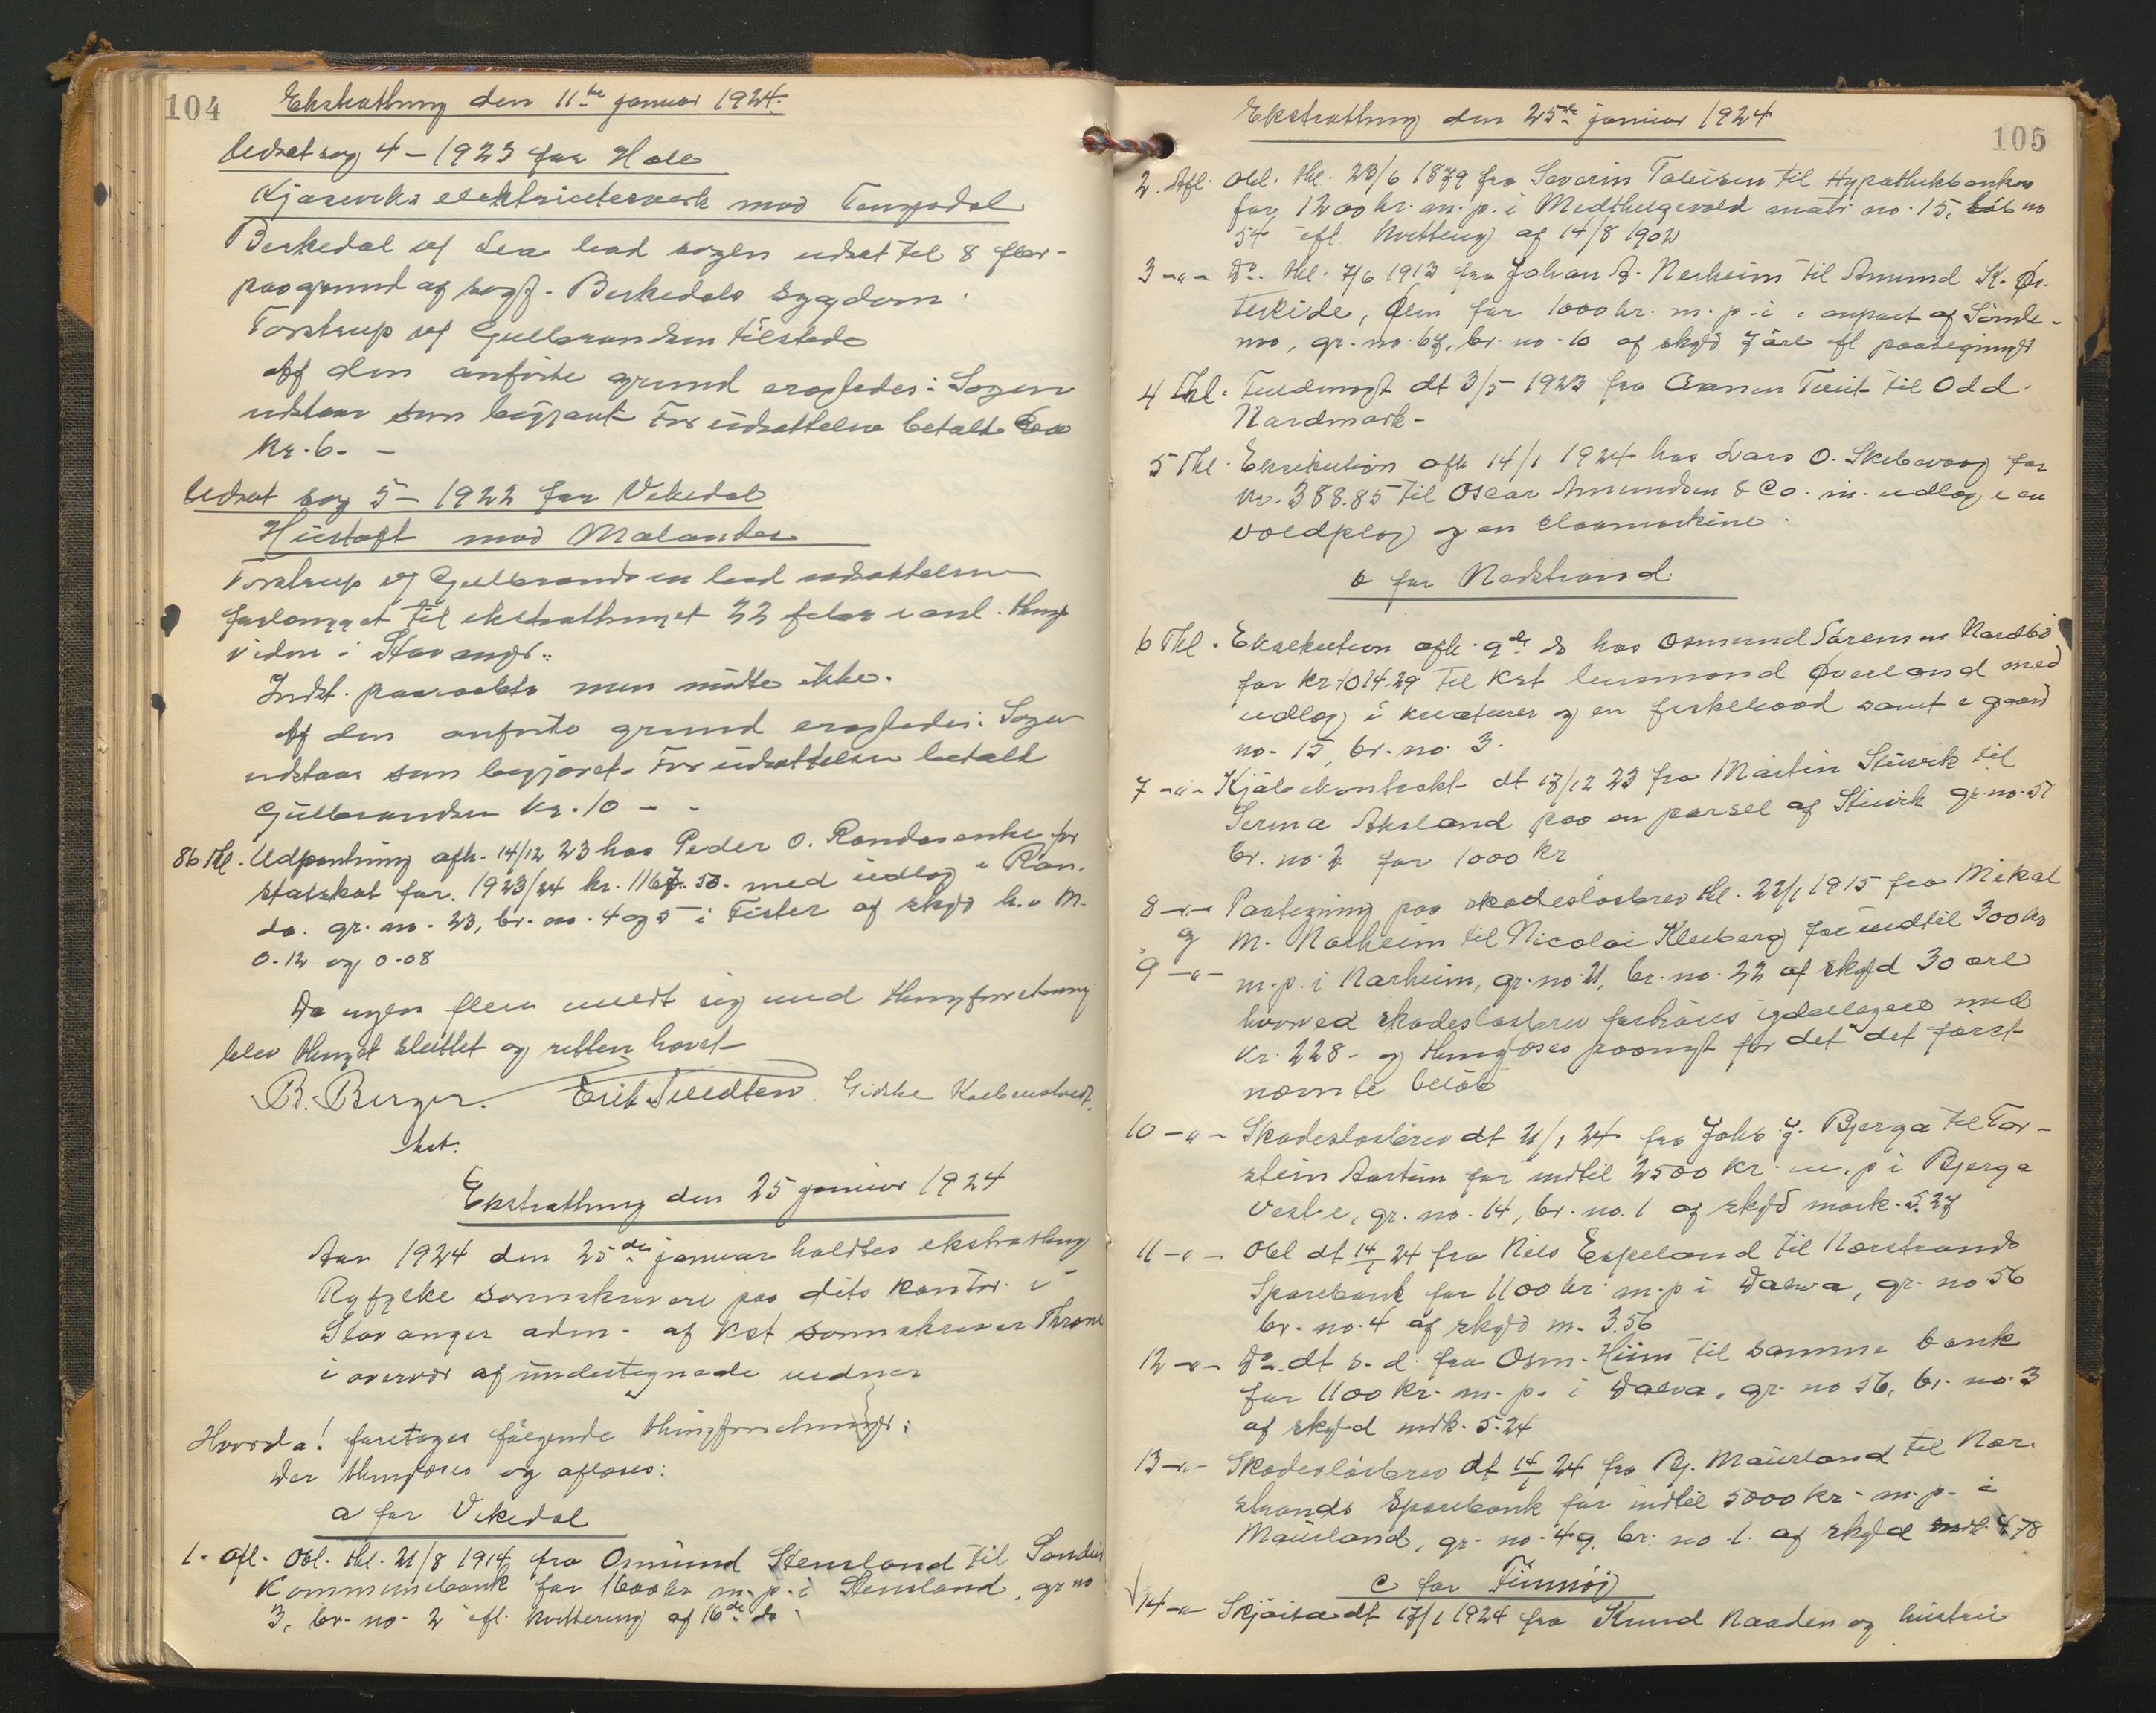 104
Ekstrathing den 11te januar 1924.
Udsat sag 4 – 1923 for Hole
elektricitetsverk mod
Berkedal vf Lea lod sagen udsat til 8 febr-
paa grund af sagf. Berkedals sygdom.
Torstrup vf Gulbrandsen tilstede
Af den anförte grund eragtedes: Sagen
udstaar som begjært For udsættelse betalt Lea
kr. 6. –
Udsat sag 5 – 1922 for Vikedal
mod Malander
Torstrup vf Gulbrandsen lod udsættelsen
forlænget til ekstrathinget 22 febr i anl. thing
viden i Stavanger.
Indst. paaraabts men mödte ikke.
Af den anförte grund eragtedes: Sagen
udstaar som begjæret. For udsættelsen betalt
Gulbrandsen kr. 10 – -
86 Thl. Udpantning afh. 14/12 23 hos Peder O. Randasenke for
statskat for. 1923/24 kr. med udlæg i Ran.
da. gr. no. 23, br. no. 4 og 5 i Fister af skyld h.v M.
0.12 og 0.08
Da ingen flere meldt sig med thingforretning
blev thinget sluttet og retten hævet
B. Berger. Erik Tvedten. Gidske
kst.
Ekstrathing den 25 januar 1924
Aar 1924 den 25de januar holdtes ekstrathing
Ryfylke sorenskriveri paa dets kontor i
Stavanger adm. af kst sorenskriver Throne
i overvær af undertegnede vidner
Hvorda! foretoges fölgende thingforretninger:
Der thinglæses og aflæses:
a for Vikedal
1. Afl. Obl. thl. 21/8 1914 fra Osmund Stensland til Sandeid
Kommunebank for 1600 kr m. p. i Stensland, gr no
3, br. no. 2 ifl. kvittering af 16de ds
Ekstrathing den 25de januar 1924
105
2. Afl. Obl. thl. 23/6 1879 fra Severin Tolleisen til Hypothekbanken
for 1200 kr. m. p. i Medthelgevold matr. no. 15, löb no
54 ifl. kvittering af 14/8 1902
3 –"– Do. thl. 7/6 1913 fra Johan A. Nerheim til Amund K. Øs.
Ølen for 1000 kr. m. p. i anpart af Sönde-
mo, gr. no. 67, br. no. 10 af skyld 7 öre ifl paategning
4 Thl. Fuldmagt dt 3/5 1923 fra Tveit til Odd
Nordmark.
5 Thl. Eksekution afh 14/1 1924 hos Lars O. Skebevaag for
kr. 388.85 til Oscar Amundsen & Co. m. udlæg i en
voldplog og en slaamaskine.
b for Nedstrand.
6 Thl. Eksekution afh. 9de ds hos Osmund Sörensen Nordbö
for kr 1014.29 til kst lensmand Øverland med
udlæg i kreaturer og en fiskebaad samt i gaard
no. 15, br. no. 3.
7 –"– Kjöbekontrakt dt 17/12 23 fra Martin Stuvik til
Serina Aksland paa en parsel af Stuvik gr. no. 51
br. no. 2 for 1000 kr
8 –"– Paategning paa skadeslösbrev thl. 22/1 1915 fra Mikal
og M. Narheim til Nicolai Kleiberg for indtil 300 kr
9 –"– m. p. i Narheim, gr. no. 21, br. no. 22 af skyld 30 öre
hvorved skadeslösbrev forhöies yderligere med
kr. 228 – og thinglæses paanyt for det det först
nævnte belöb
10 –"– Skadeslösbrev dt 21/1 24 fra Johs J. Bjerga til Tor-
stein Aartun for indtil 2500 kr. m. p i Bjerga
vestre, gr. no. 14, br. no. 1 af skyld mark. 5.27
11 –"– Obl dt 14/1 24 fra Nils Espeland til Nærstrands
Sparebank for 1100 kr m. p i Dalva, gr. no 56
br. no. 4 af skyld m. 3.56
12 –"– Do. dt s. d. fra Osm. Hiim til samme bank
for 1100 kr. m. p. i Dalva, gr. no 56, br. no. 3
af skyld mrk. 5.24
13 –"– Skadeslösbrev dt 14/1 24 fra Bj. Maurland til Nær.
strands Sparebank for indtil 5000 kr. m. p. i
Maurland, gr. no. 49, br. no 1. af skyld mrk. 4.78
c for Finnöy
14 –"– Skjöite dt 17/1 1924 fra Knud Naaden og hustru